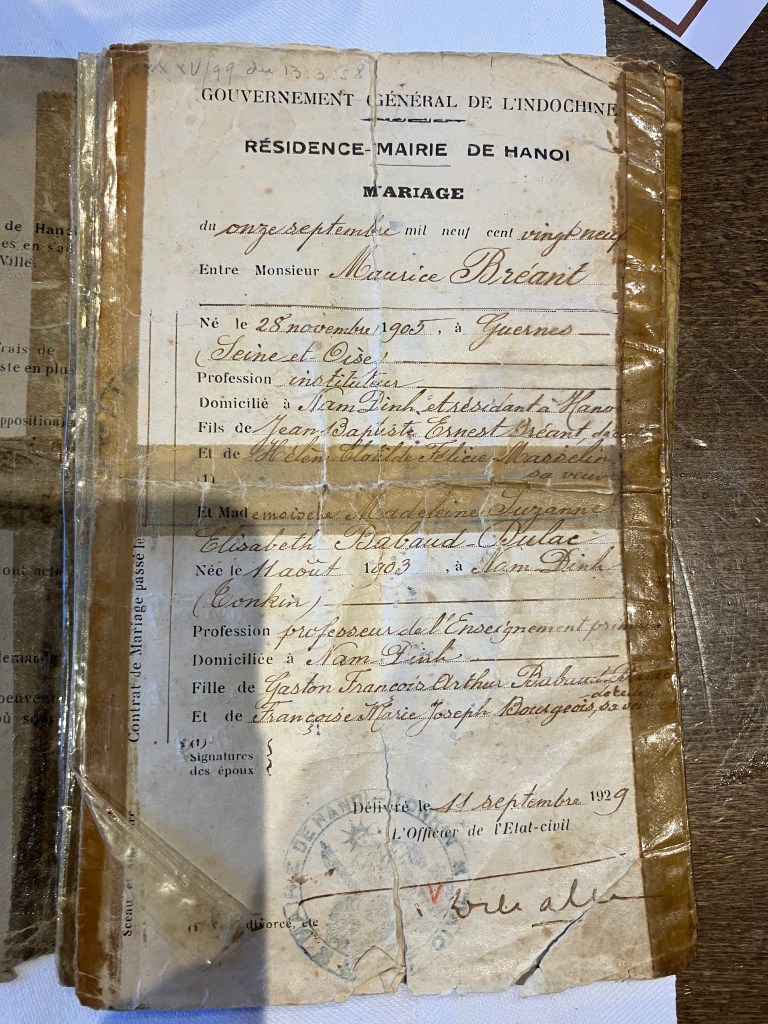 du 13.3.58
GOUVERNEMENT GÉNÉRAL DE L'INDOCHINE
RÉSIDENCE-MAIRIE DE HANOI
MARIAGE
du onze septembre mil neuf cent vingt neuf
Entre Monsieur Maurice Bréant
Né le 28 novembre 1905, à Guernes
(Seine-et-Oise)
Profession instituteur
Domicilié à Nam Dinh et résidant à Hano
Fils de Jean Baptiste Ernest Bréant, dé
Et de Hélène Clotilde Félicie Masselin
(1) sa veuv
Et Mademoiselle Madeleine Suzanne
Elisabeth Babaud-Dulac
Née le 11 août 1903, à Nam Dinh
(Tonkin)
Profession professeur de l'Enseignement prim
Domiciliée à Nam-Dinh
Fille de Gaston François Arthur Babaud
Et de Françoise Marie Joseph Bourgeois, sa
(1)
Signatures
des époux
Délivré le 11 septembre 1929
L'Officier de l'Etat-civil
divorce, etc
Contrat de Mariage passé le
Sceau et
MAIRIE DE HANOI
de Hano
es en s'a
Ville.
rais de
ste en plu
opposition
tout acte
deman
peuvent